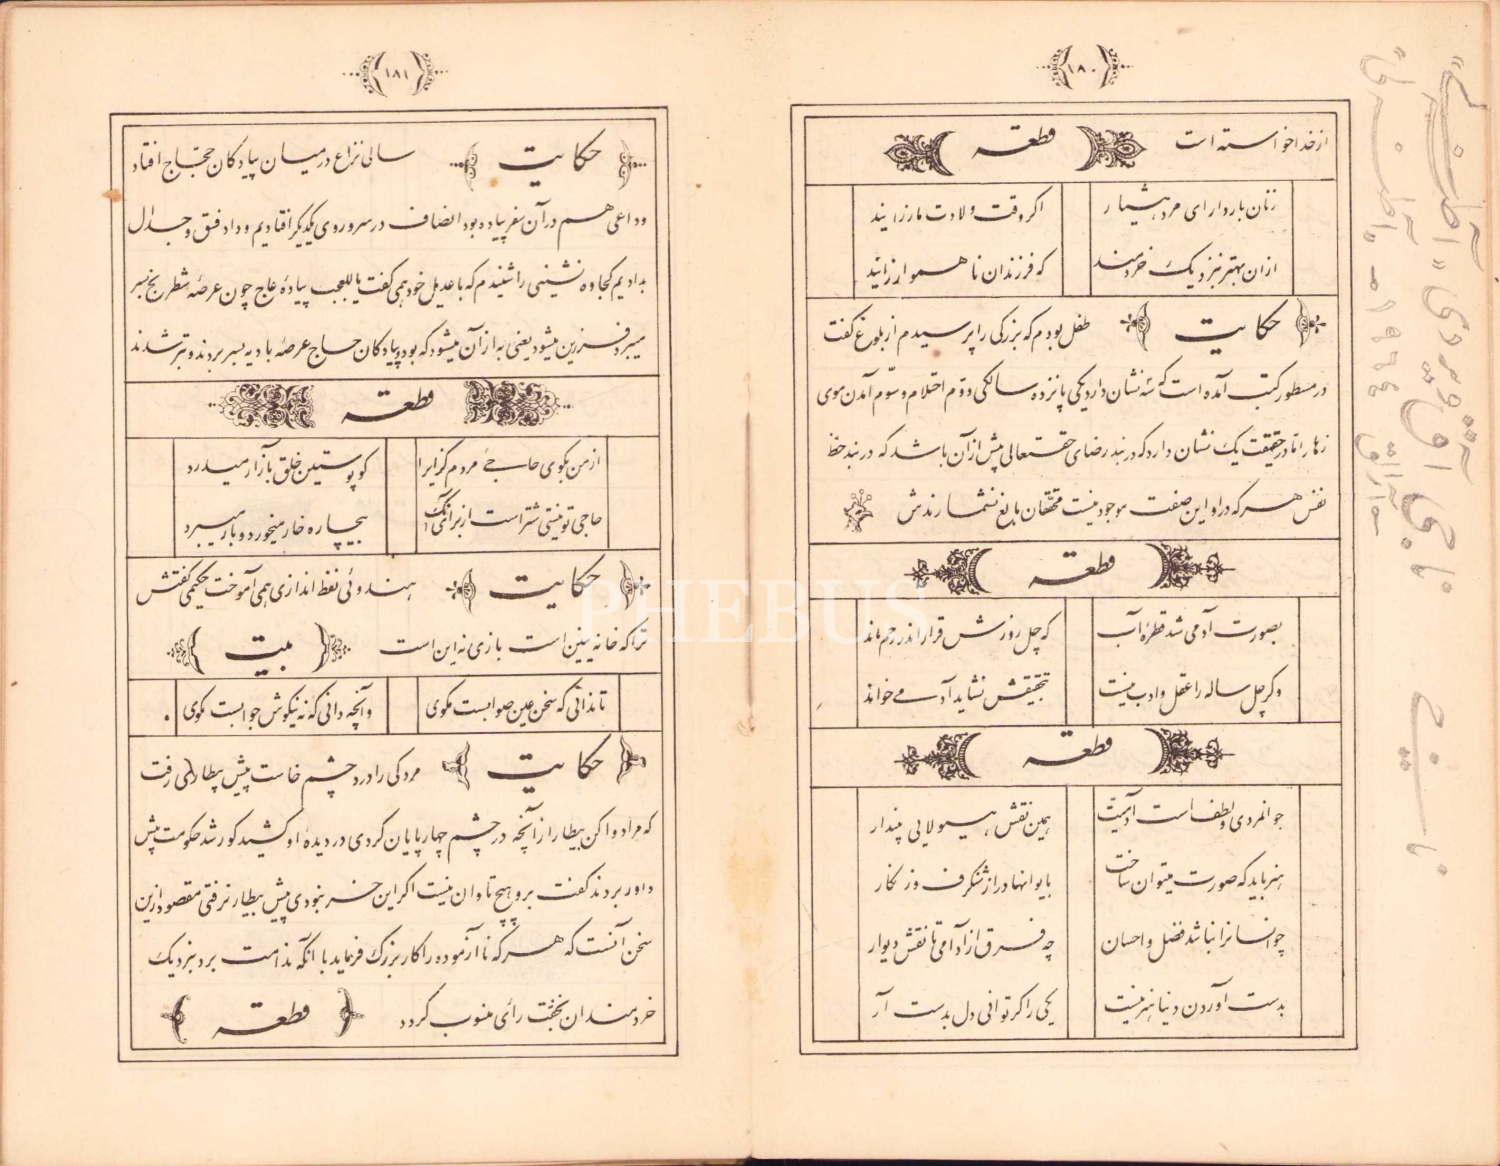 ١٨٠
از خدا خواسته است قطعه
زنان باردار ای مرد هشیار اگر وقت ولادت مار زایند
از ان بهتر بنزدیک خردمند که فرزندان ناهموار زایند
حکایت طفل بودم که بزرگی را پرسیدم از بلوغ گفت
در مسطور کتب آمده است که سه نشان دارد یکی پانزده سالگی و دوّم احتلام و سوّم آمدن موی
زهار امّا در حقیقت یک نشان دارد که در بند رضای حقتعالی پیش از آن باشد که در بند حظّ
نفس هر که در او این صفت موجود نیست محقّقان بالغ نشمارندش
قطعه
بصورت آدمی شد قطرهٔ آب که چل روزش قرار اندر رحم ماند
وگر چل ساله را عقل و ادب نیست بتحقیقش نشاید آدمی خواند
قطعه
جوانمردی و لطف است آدمیّت همین نقش هیولایی مپندار
هنر باید که صورت میتوان ساخت بایوانها در از شنگرف و زنگار
چو انسانرا نباشد فضل و احسان چه فرق از آدمی تا نقش دیوار
بدست آوردن دنیا هنر نیست یکی را گر توانی دل بدست آر
١٨١
حکایت سالی نزاع در میان پیادگان حجّاج افتاد
و داعی هم در آن سفر پیاده بود انصاف در سر و روی یکدیگر افتادیم و داد فسق و جدال
بدادیم کجاوه نشینی را شنیدم که با عدیل خود همی گفت یا للعجب پیادهٔ عاج چون عرصهٔ شطرنج بسر
میبرد فرزین میشود یعنی به از آن میشود که بود و پیادگان حاج عرصهٔ بادیه بسر بردند و بتر شدند
قطعه
از من بگوی حاجیٔ مردم گزایرا کو پوستین خلق بآزار میدرد
حاجی تو نیستی شتر است از برای آنک بیچاره خار میخورد و بار میبرد
حکایت هندوئی نفط اندازی همی آموخت حکیمی گفتش
ترا که خانه نیین است بازی نه این است بیت
تا ندانی که سخن عین صوابست مگوی و آنچه دانی که نه نیکوش جوابست مگوی
حکایت مردکی را درد چشم خاست پیش بیطاری رفت
که مرا دوا کن بیطار از آنچه در چشم چهارپایان کردی در دیدهٔ او کشید کور شد حکومت پیش
داور بردند گفت برو هیچ تاوان نیست اگر این خر نبودی پیش بیطار نرفتی مقصود ازین
سخن آنست که هر که ناآزموده را کار بزرگ فرماید با آنکه ندامت برد بنزدیک
خردمندان بخفّت رأی منسوب گردد قطعه
PHEBUS